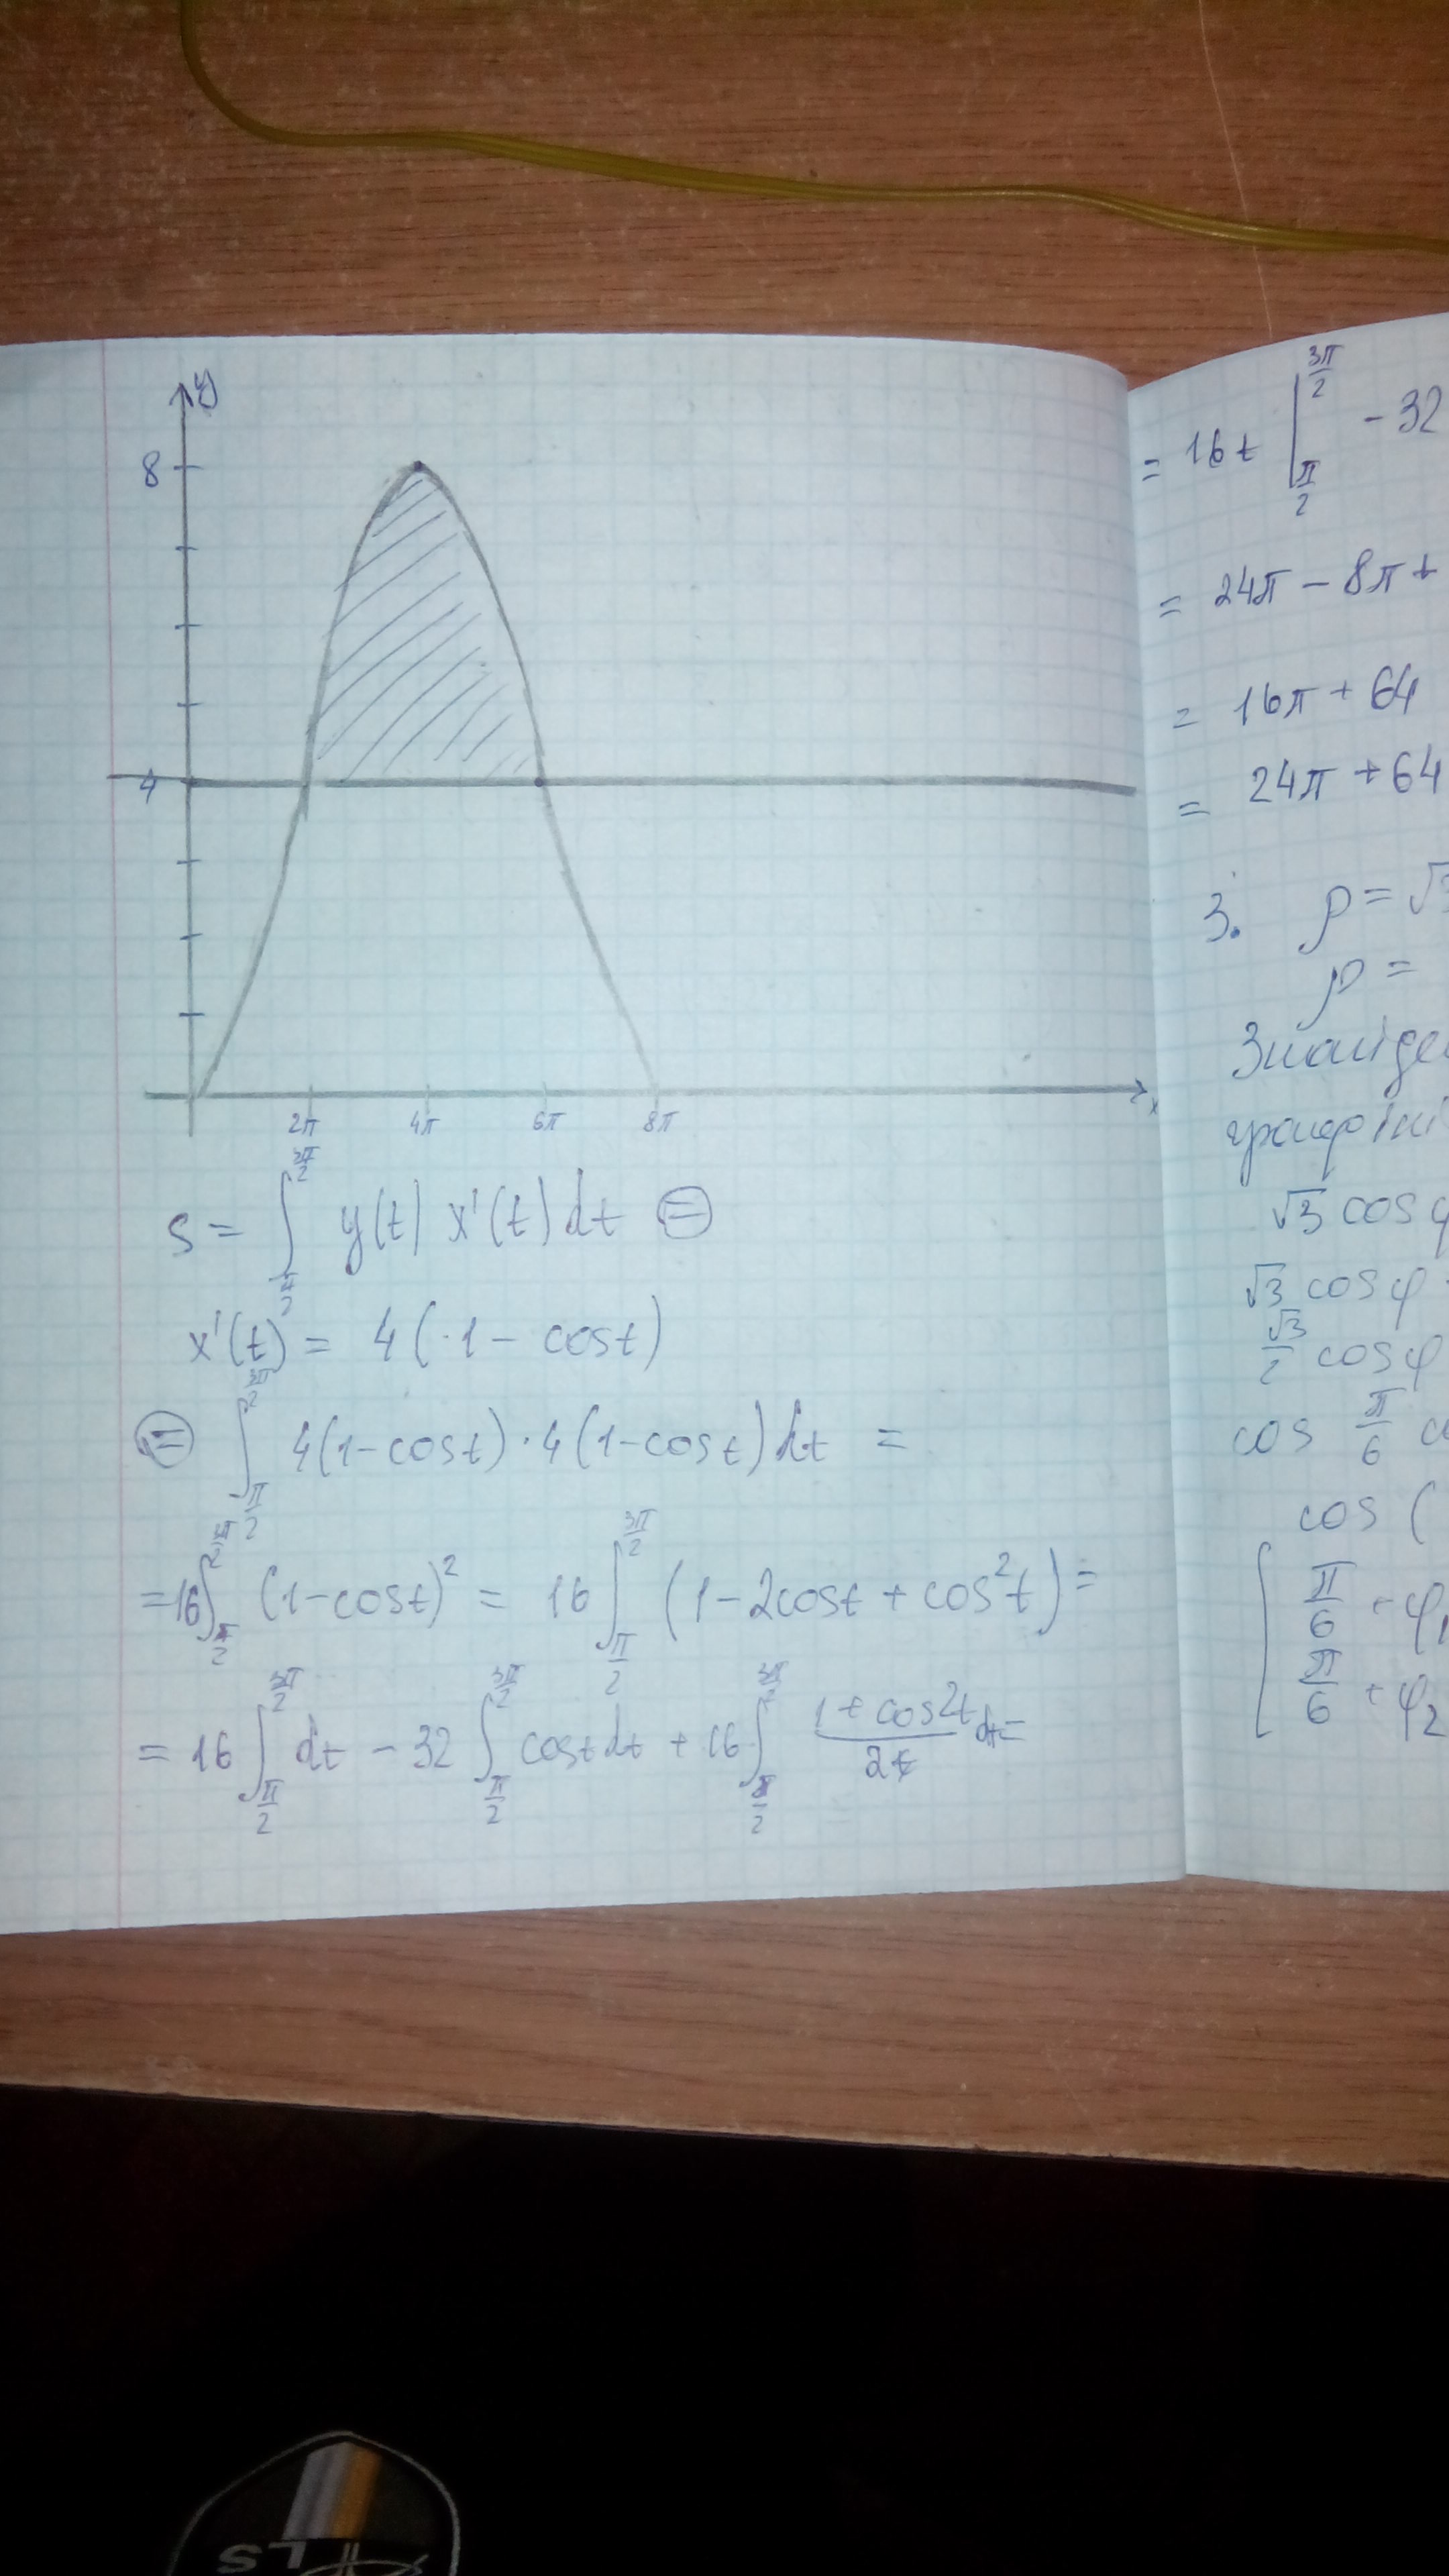 y
8
4
2π 4π 6π 8π x
S = ∫_{π/2}^{3π/2} y(t) x'(t) dt ⊜
x'(t) = 4(1 - cost)
⊜ ∫_{π/2}^{3π/2} 4(1-cost)·4(1-cost)dt =
=16∫_{π/2}^{3π/2} (1-cost)² = 16∫_{π/2}^{3π/2} (1-2cost+cos²t) =
= 16∫_{π/2}^{3π/2} dt - 32∫_{π/2}^{3π/2} cost dt + 16∫_{π/2}^{3π/2} (1+cos2t)/2 dt =
= 16t |_{π/2}^{3π/2} - 32
= 24π - 8π +
= 16π + 64
= 24π + 64
3. ρ = √3
ρ =
Знайде
графікі
√3 cos φ
√3 cos φ
√3/2 cos φ
cos π/6 c
cos (
π/6 + φ1
π/6 + φ2
LS